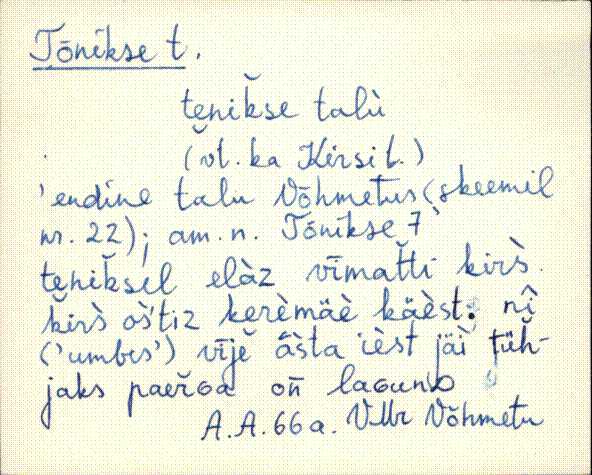 Tõnikse t.
tęnik̆se talù
(vt. ka Kirsi t.)
'endine talu Võhmetus (skeemil
nr. 22); am. n. Tõnikse 7'
tęnik̆sel elàz vīmat̆ti kirs̀.
kirs̀ os̄tiz kerèmäè käèst: nì
('umbes') vījĕ āsta ièst jäì tüh-
jaks paeɢa on̄ laɢunᴅ
A.A. 66 a. VMr Võhmetu